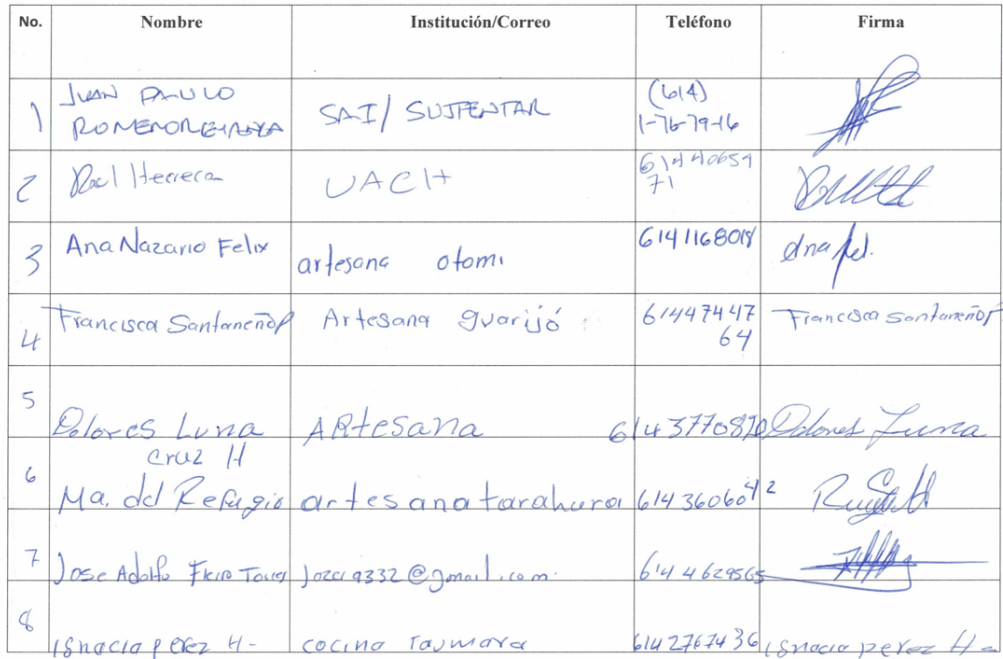 No. Nombre Institución/Correo Teléfono Firma
1 JUAN PAULO SAI/ SUSTENTAR (614)
1-76-79-16
2 Raul Herrera UACH 61440659
71
3 Ana Nazario Felix artesana otomi 6141168018 Ana fel.
4 Francisca Santaneño artesana guarijó 61447447 Francisca Santaneño
64
5
Dolores Luna ARtesana 6143770870 Dolores Luna
Cruz H
6
Ma. del Refugio artesana tarahura 6143606042
7 Jose Adolfo Torres @gmail.com 6144629565
8
ignacia perez H- cocina raumara 6142767436 ignacia perez H-